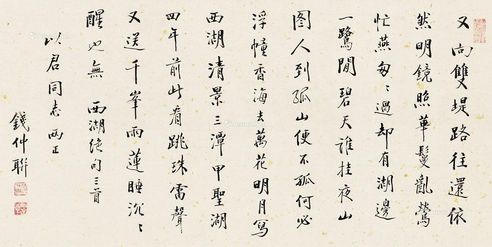 又向雙堤路往還依
然明鏡照華鬢亂鶯
忙燕匆〻過却有湖邊
一鷺閒碧天誰挂夜山
圖人到孤山便不孤何必
浮幢香海去萬花明月寫
西湖清景三潭甲聖湖
四年前此看跳珠雷聲
又送千峯雨蓮睡沉〻
醒也無 西湖絕句三首
以君同志兩正
錢仲聯